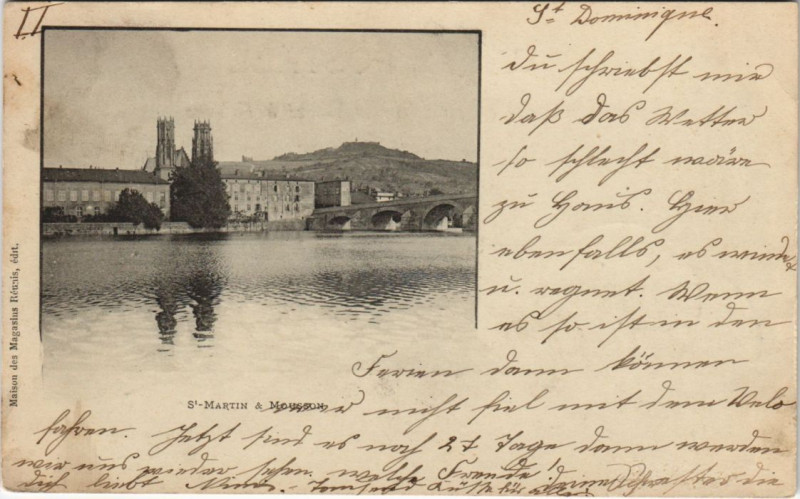 II
St Dominique.
Du schriebst mir
daß das Wetter
so schlecht wäre
zu Haus. Hier
ebenfalls, es windet
u. regnet. Wenn
es so ist in den
Ferien dann können
wir nicht fiel mit dem Velo
fahren. Jetzt sind es noch 27 Tage dann werden
wir uns wieder sehen, welche Freude! deine Schwester die
dich liebt
St-MARTIN & MOUSSON
Maison des Magasins Réunis, édit.